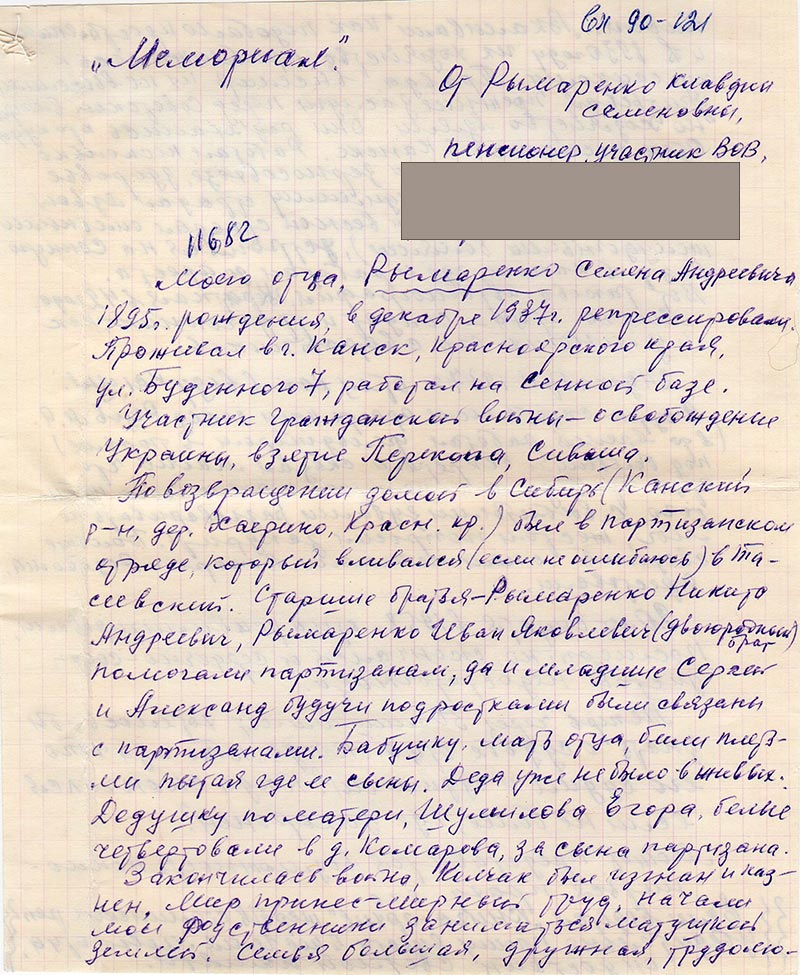 Вх 90-121
„Мемориал".
От Рымаренко Клавдии
Семеновны,
пенсионер, участник ВОВ,
11682
Моего отца, Рымаренко Семена Андреевича
1895г. рождения, в декабре 1937г. репрессировали.
Проживал в г. Канск, Красноярского края,
ул. Буденного 7, работал на Сенной базе.
Участник гражданской войны – освобождение
Украины, взятие Перекопа, Сиваша.
По возвращении домой в Сибирь (Канский
р-н, дер. Хаерино, Красн. кр.) был в партизанском
отряде, который вливался (если не ошибаюсь) в Та-
сеевский. Старшие братья – Рымаренко Никита
Андреевич, Рымаренко Иван Яковлевич (двоюродный
брат)
помогали партизанам, да и младшие Сергей
и Александ будучи подростками были связаны
с партизанами. Бабушку, мать отца, били плеть-
ми пытая где ее сыны. Деда уже не было в живых.
Дедушку по матери, Шумилова Егора, белые
четвертовали в д. Комарова, за сына партизана.
Закончилась война, Колчак был изгнан и каз-
нен. Мир принес мирный труд. Начали
мои родственники заниматься матушкой
землей. Семья большая, дружная, трудолю-